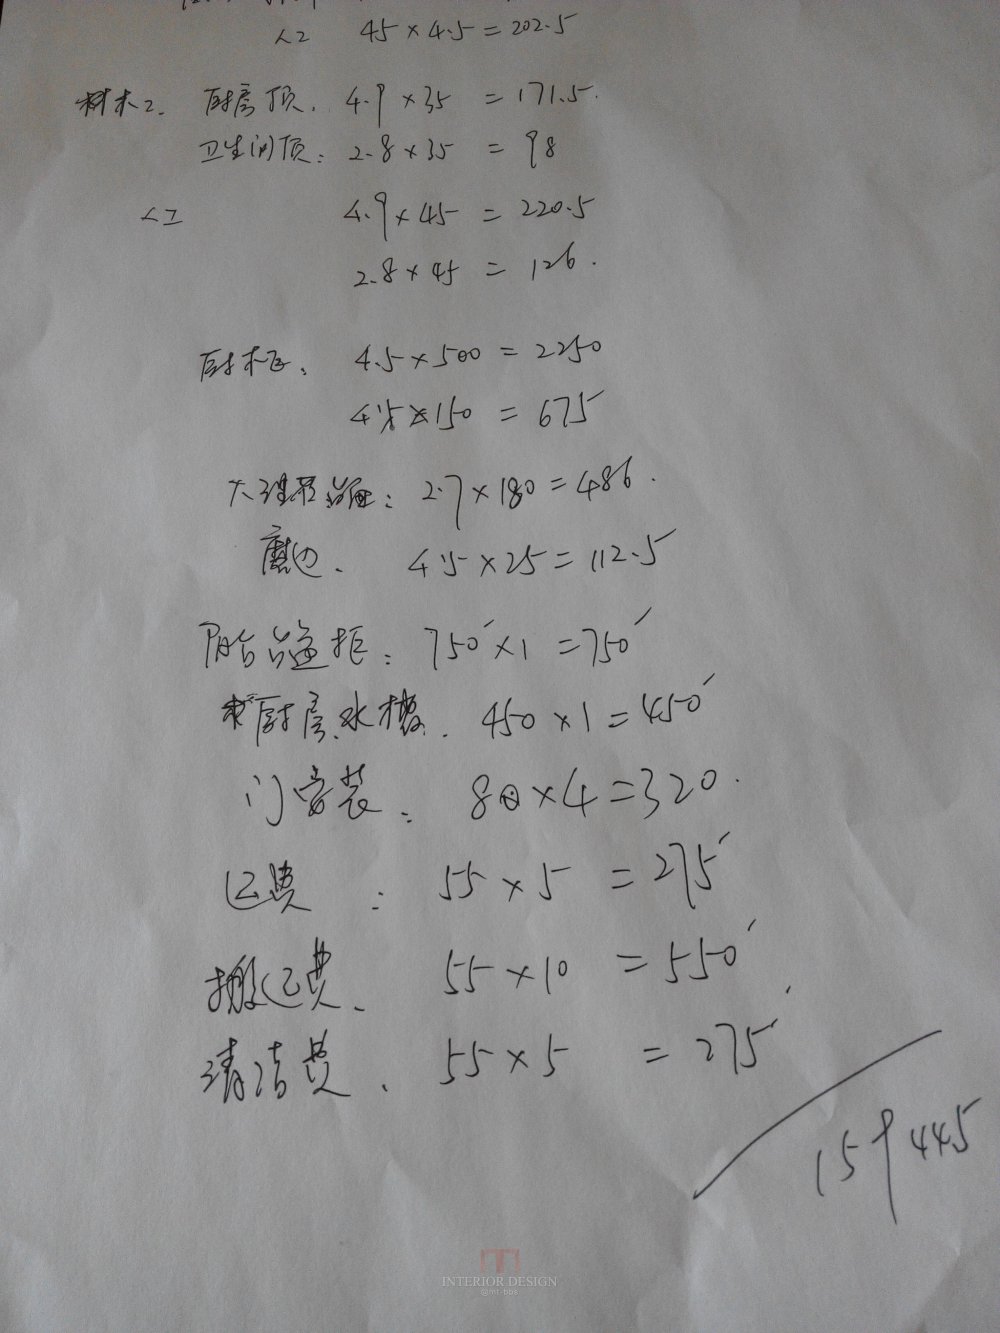 人工 45×4.5=202.5
材木工. 厨房顶. 4.9×35 =171.5.
卫生间顶: 2.8×35 = 98
人工 4.9×45 = 220.5
2.8×45 = 126.
厨柜: 4.5×500 = 2250
4.5×150 = 675
大理石台面: 2.7×180=486.
磨边. 4.5×25=112.5
阳台 柜: 750×1 =750
厨房水槽. 450×1=450
门安装: 80×4=320.
运费 : 55×5 =275
搬运费. 55×10 =550
清洁费. 55×5 = 275
159445
INTERIOR DESIGN
@mt-bbs